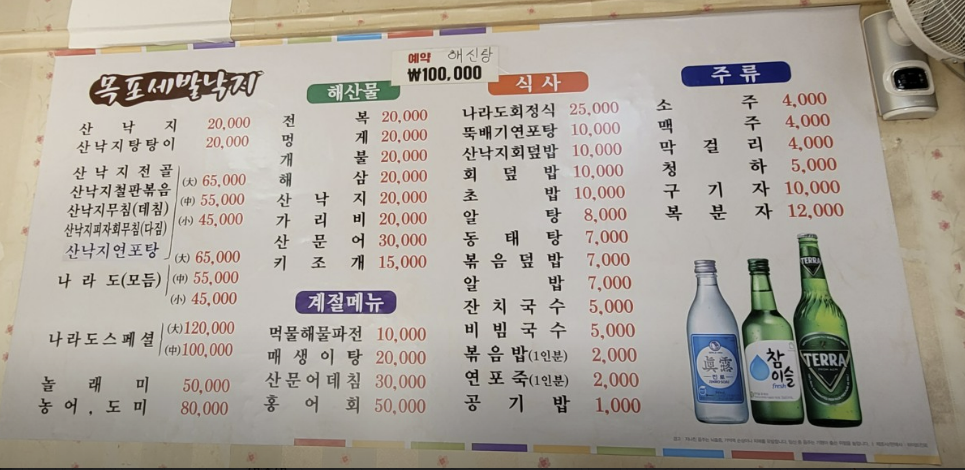 예약 해신탕
₩100,000
목포세발낙지
산낙지 20,000
산낙지탕탕이 20,000
산낙지전골
산낙지철판볶음
산낙지무침(데침)
산낙지피자회무침(다짐)
산낙지연포탕
(大) 65,000
(中) 55,000
(小) 45,000
나라도(모듬)
(大) 65,000
(中) 55,000
(小) 45,000
나라도스페셜
(大) 120,000
(中) 100,000
놀래미 50,000
농어.도미 80,000
해산물
전복 20,000
멍게 20,000
개불 20,000
해삼 20,000
산낙지 20,000
가리비 20,000
산문어 30,000
키조개 15,000
계절메뉴
먹물해물파전 10,000
매생이탕 20,000
산문어데침 30,000
홍어회 50,000
식사
나라도회정식 25,000
뚝배기연포탕 10,000
산낙지회덮밥 10,000
회덮밥 10,000
초밥 10,000
알탕 8,000
동태탕 7,000
볶음덮밥 7,000
알밥 7,000
잔치국수 5,000
비빔국수 5,000
볶음밥(1인분) 2,000
연포죽(1인분) 2,000
공기밥 1,000
주류
소주 4,000
맥주 4,000
막걸리 4,000
청하 5,000
구기자 10,000
복분자 12,000
眞露
참이슬
fresh
TERRA
TERRA